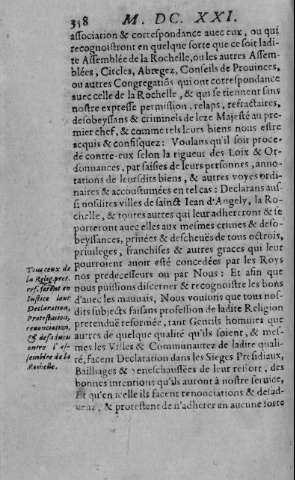 318 M. DC. XXI.
association & correspondance auec eux, ou qui
recognoistront en quelque sorte que ce soit ladi-
te Assemblée de la Rochelle, ou les autres Assem-
blées, Circles, Abregez, Conseils de Prouinces,
ou autres Congregatiōs qui ont correspondance
auec celle de la Rochelle, & qui se tiennent sans
nostre expresse permission, relaps, refractaires,
desobeyssans & criminels de leze Majesté au pre-
mier chef, & comme tels leurs biens nous estre
acquis & confisquez: Voulans qu'il soit proce-
dé contre-eux selon la rigueur des Loix & Or-
donnances, par saisies de leurs personnes, anno-
tations de leursdits biens, & autres voyes ordi-
naires & accoustumées en tel cas: Declarans aus-
si nosdites villes de sainct Iean d'Angely, la Ro-
chelle, & toutes autres qui leur adhereront & se
porteront auec elles aux mesmes crimes & deso-
beyssances, priuées & descheuës de tous octrois,
priuileges, franchises & autres graces qui leur
pourroient auoir esté concedées par les Roys
nos predecesseurs ou par Nous: Et afin que
nous puissions discerner & recognoistre les bons
d'auec les mauuais, Nous voulons que tous nos-
dits subjects faisans profession de ladite Religion
pretenduë reformée, tant Gentils hommes que
autres de quelque qualité qu'ils soient, & mes-
mes les Villes & Communautez de ladite quali-
té, facent Declaration dans les Sieges Presidiaux,
Bailliages & Seneschaussées de leur ressort, des
bonnes intentions qu'ils auront à nostre seruice,
Et qu'en icelle ils facent renonciations & desad-
ueuz, & protestent de n'adherer en aucune sorte
Tous ceux de
la Relig. pret.
ref. feront en
Iustice leur
Declaration,
Protestation,
renonciation,
& desadueu
contre l'As-
semblée de la
Rochelle.